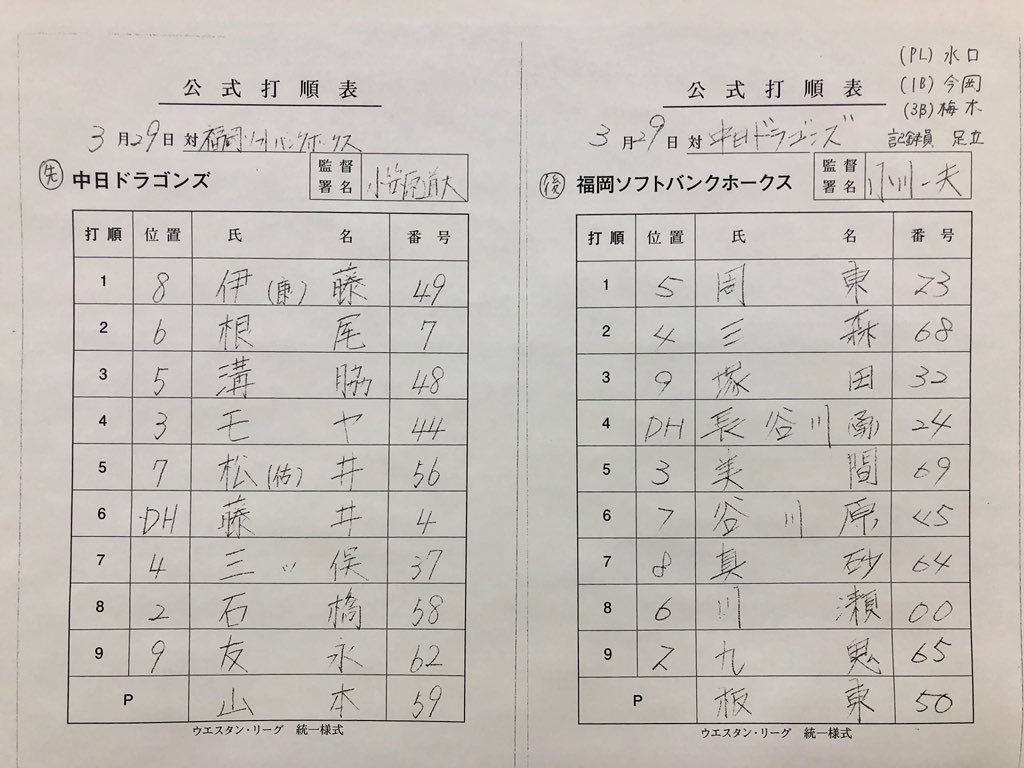 公式打順表
3月29日 対 福岡ソフトバンクホークス
先 中日ドラゴンズ 監督署名 小笠原道大
打順 位置 氏名 番号
1 8 伊(康)藤 49
2 6 根尾 7
3 5 溝脇 48
4 3 モヤ 44
5 7 松(佑)井 56
6 DH 藤井 4
7 4 三ッ俣 37
8 2 石橋 58
9 9 友永 62
P 山本 59
ウエスタン・リーグ 統一様式
(PL) 水口
(1B) 今岡
(3B) 梅木
記録員 足立
公式打順表
3月29日 対 中日ドラゴンズ
後 福岡ソフトバンクホークス 監督署名 小川一夫
打順 位置 氏名 番号
1 5 周東 23
2 4 三森 68
3 9 塚田 32
4 DH 長谷川勇 24
5 3 美間 69
6 7 谷川原 45
7 8 真砂 64
8 6 川瀬 00
9 2 九鬼 65
P 板東 50
ウエスタン・リーグ 統一様式